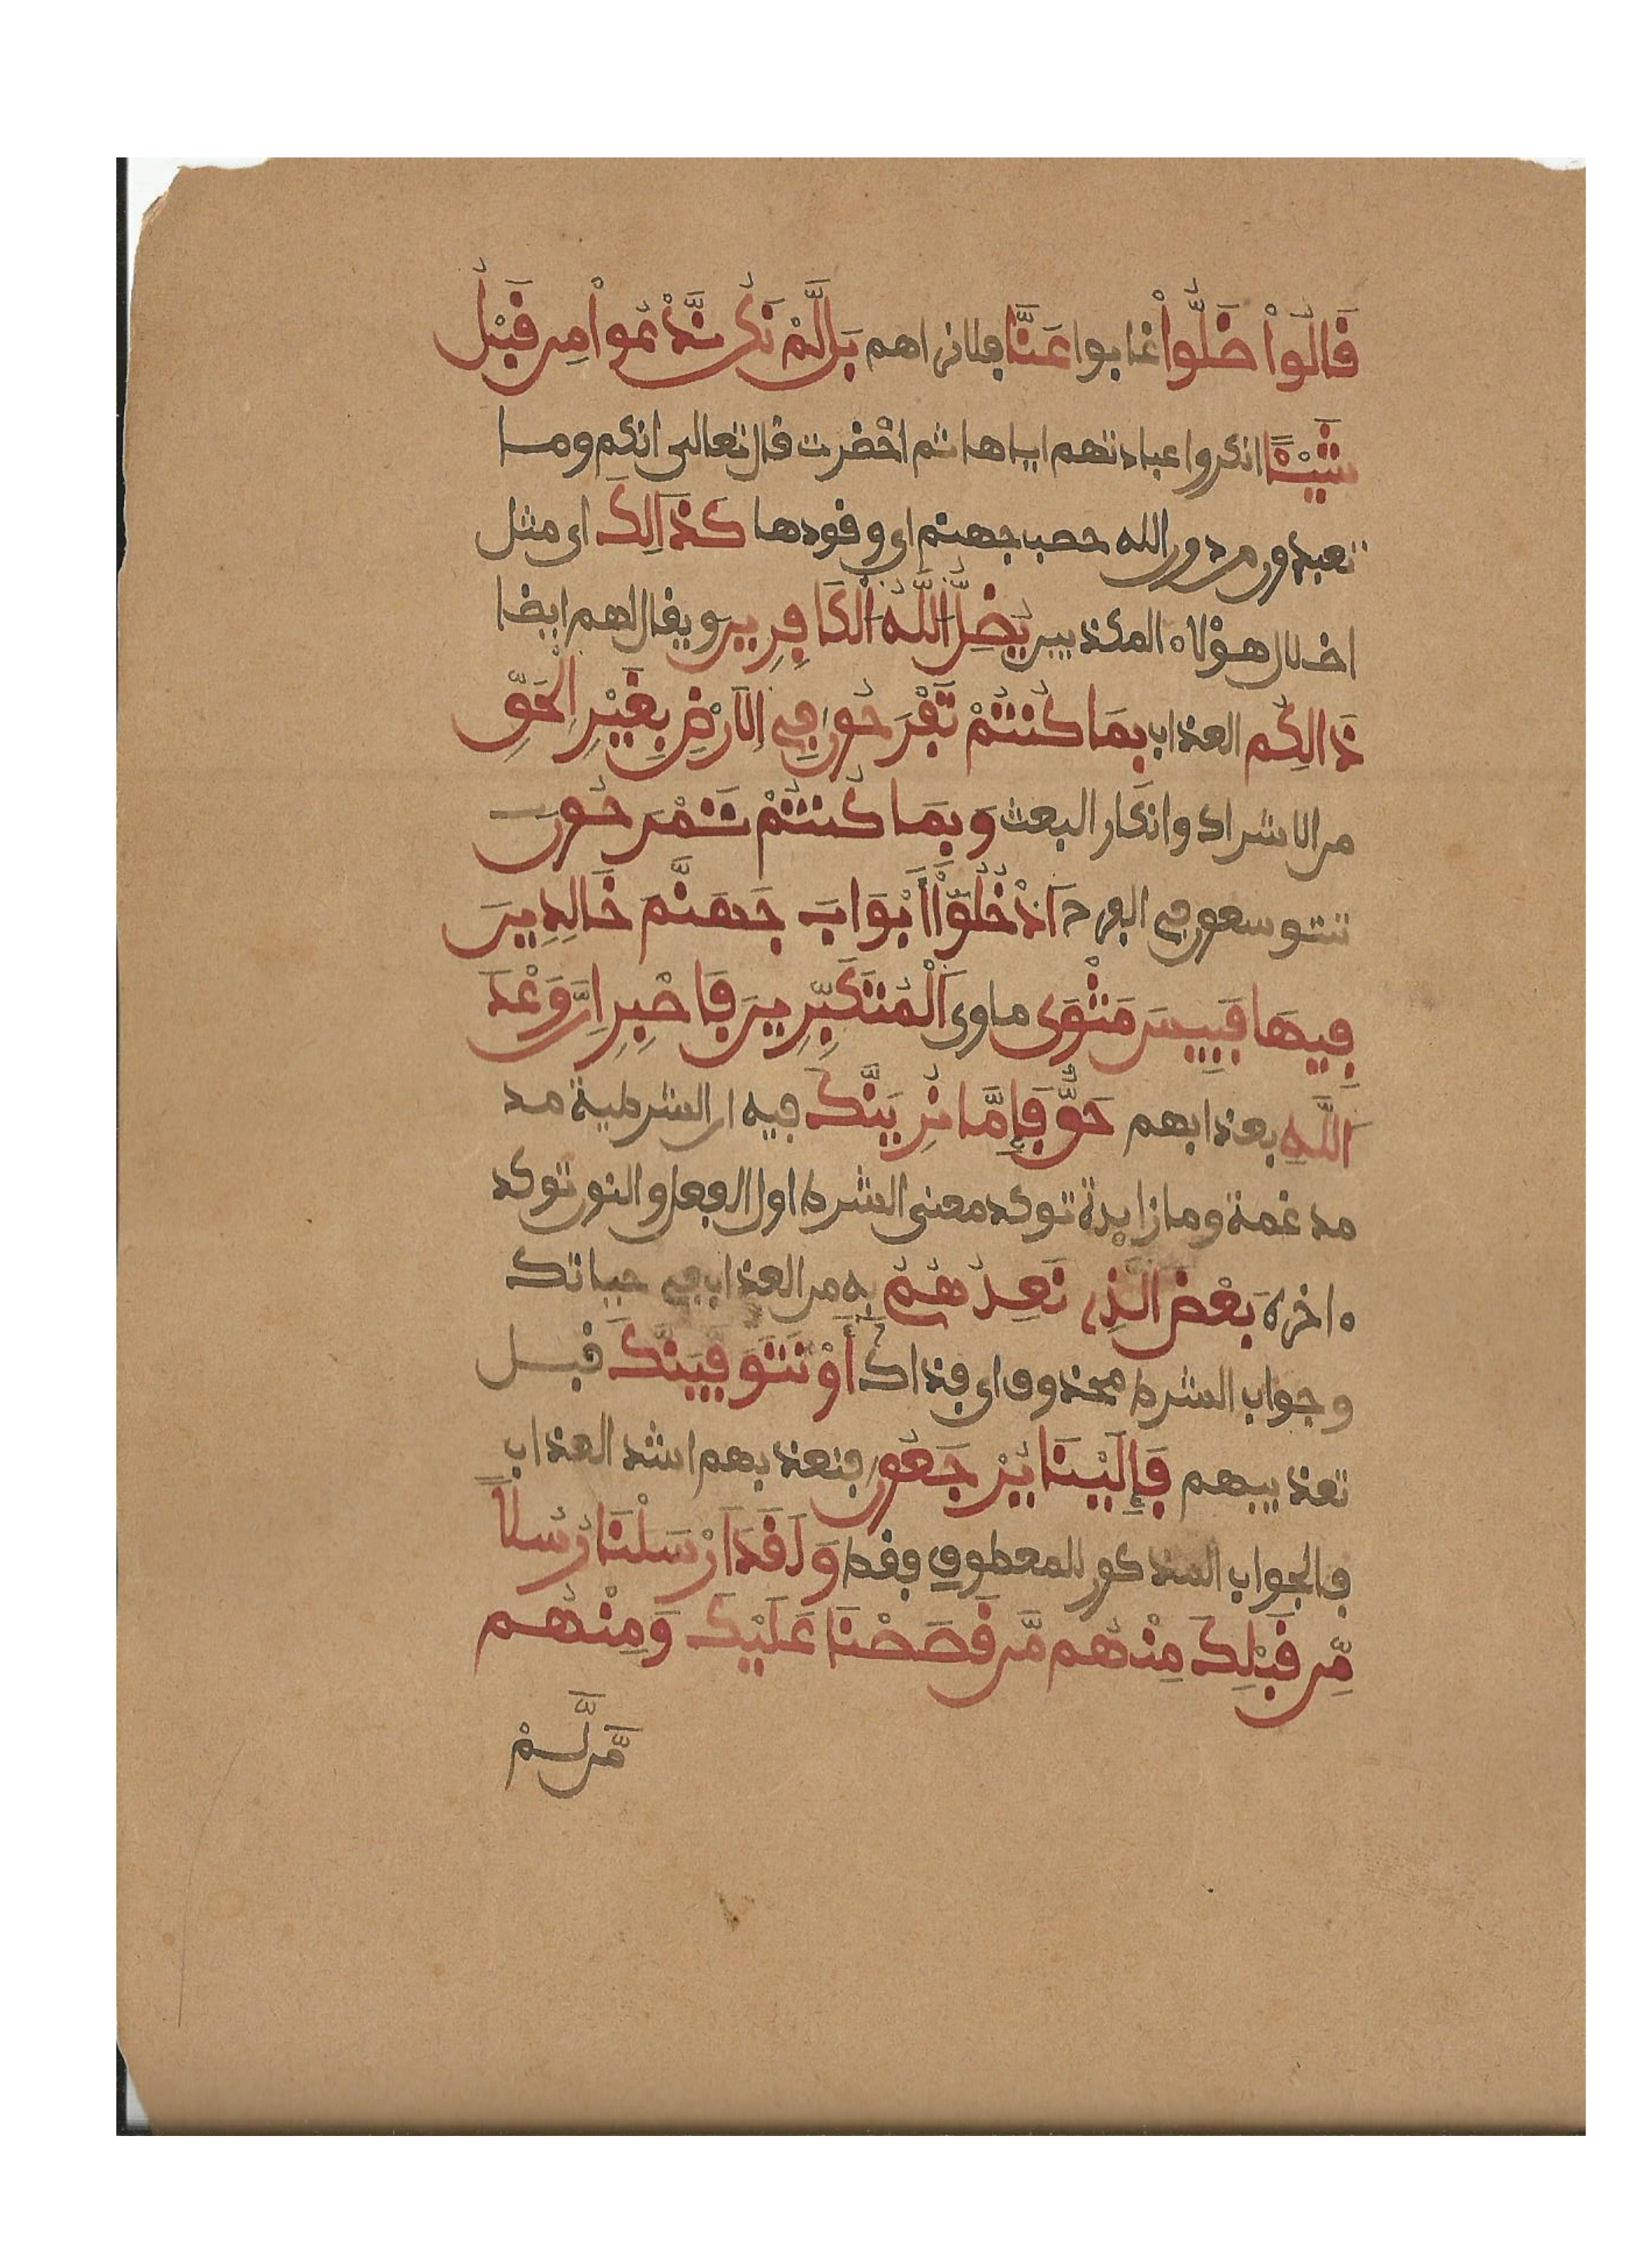 قَالُوا۟ ضَلُّوا۟ غابوا عَنَّا فلا نراهم بَل لَّمْ نَكُن نَّدْعُوا۟ مِن قَبْلُ
شَيْـًٔا انكروا عبادتهم اياها ثم احضرت قال تعالى انكم وما
تعبدون من دون الله حصب جهنم اي وقودها كَذَالِكَ اي مثل
اضلال هؤلاء المكذبين يُضِلُّ اللَّهُ الْكَافِرِينَ ويقال لهم ايضا
ذَالِكُم العذاب بِمَا كُنتُمْ تَفْرَحُونَ فِي الَارْضِ بِغَيْرِ الْحَقِّ
من الاشراك وانكار البعث وَبِمَا كُنتُمْ تَمْرَحُونَ
تتوسعون في الفرح اَدْخُلُوٓا۟ أَبْوَابَ جَهَنَّمَ خَالِدِينَ
فِيهَا فَبِيسَ مَثْوَى ماوى اَلْمُتَكَبِّرِينَ فَاصْبِرِ اِنَّ وَعْدَ
اَللَّهِ بعذابهم حَقٌّ فَإِمَّا نُرِيَنَّكَ فيه ان الشرطية مد
مدغمة وما زايدة توكد معنى الشرط اول الفعل والنون توكد
ه اخره بَعْضَ الَّذِي نَعِدُهُمْ به من العذاب في حياتك
وجواب الشرط محذوف اي فذاك أَوْ نَتَوَفَّيَنَّكَ قبل
تعذيبهم فَإِلَيْنَا يُرْجَعُونَ فنعذبهم اشد العذاب
فالجواب المذكور للمعطوف فقط وَلَقَدَ اَرْسَلْنَا رُسُلًا
مِّن قَبْلِكَ مِنْهُم مَّن قَصَصْنَا عَلَيْكَ وَمِنْهُم
مَّن لَّمْ